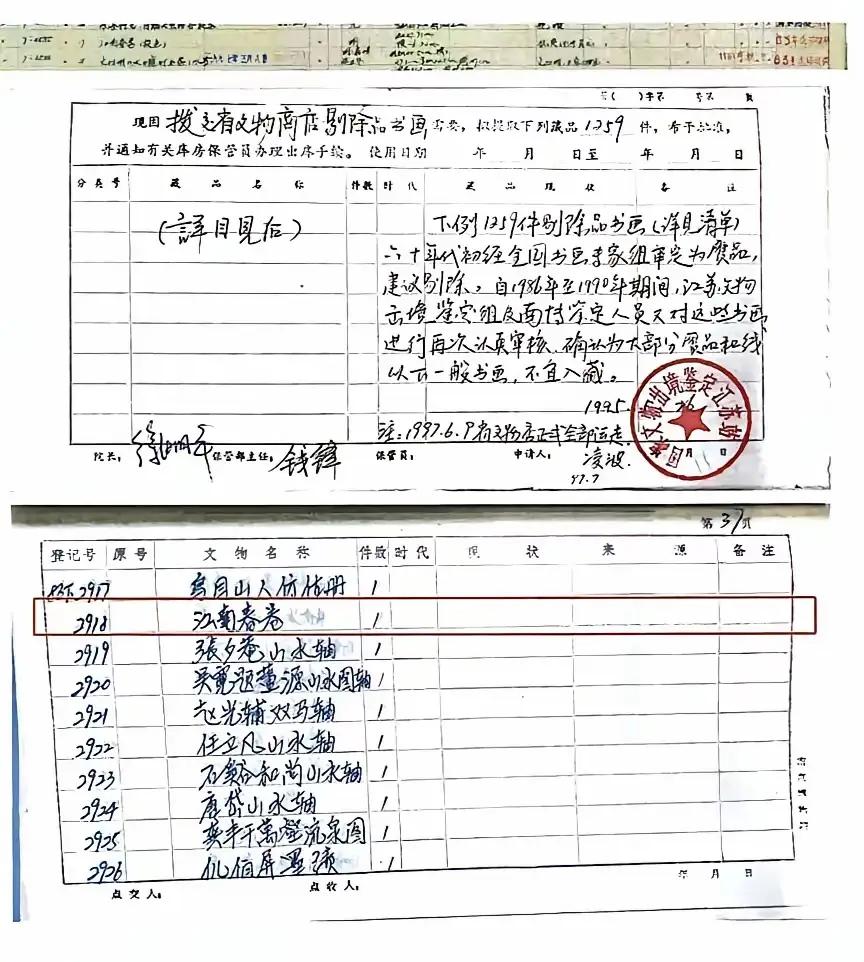 现因 拨交省文物商店剔除品书画 需要，拟提取下列藏品 1259 件，希予批准，
并通知有关库房保管员办理出库手续。使用日期 年 月 日至 年 月 日
分类号 藏品名称 件数 时代 藏品现状 备注
（詳目見后）
下例1259件剔除品书画（详见清单）
六十年代初经全国书画专家组审定为赝品，
建议剔除。自1986年至1990年期间，江苏文物
出境鉴定组及南博鉴定人员又对这些书画
进行再次认真审核，确认为大部分赝品和线
以下一般书画，不宜入藏。
1995.
注：1997.6.9 省文物店正式全部运走
院长： 徐湖平 保管部主任： 钱锋 保管员： 申请人： 凌波
97.7
国家文物出境鉴定江苏站
第 31 页
登记号 原号 文物名称 件数 时代 现状 来源 备注
2917 烏目山人仿信册 1
2918 江南春卷 1
2919 張夕菴山水轴 1
2920 吴寬题董源山水图轴 1
2921 赵光辅双马轴 1
2922 任立凡山水轴 1
2923 石谿和尚山水轴 1
2924 唐岱山水轴 1
2925 龚半千萬壑流泉图 1
2926 1
点交人： 点收人： 年 月 日